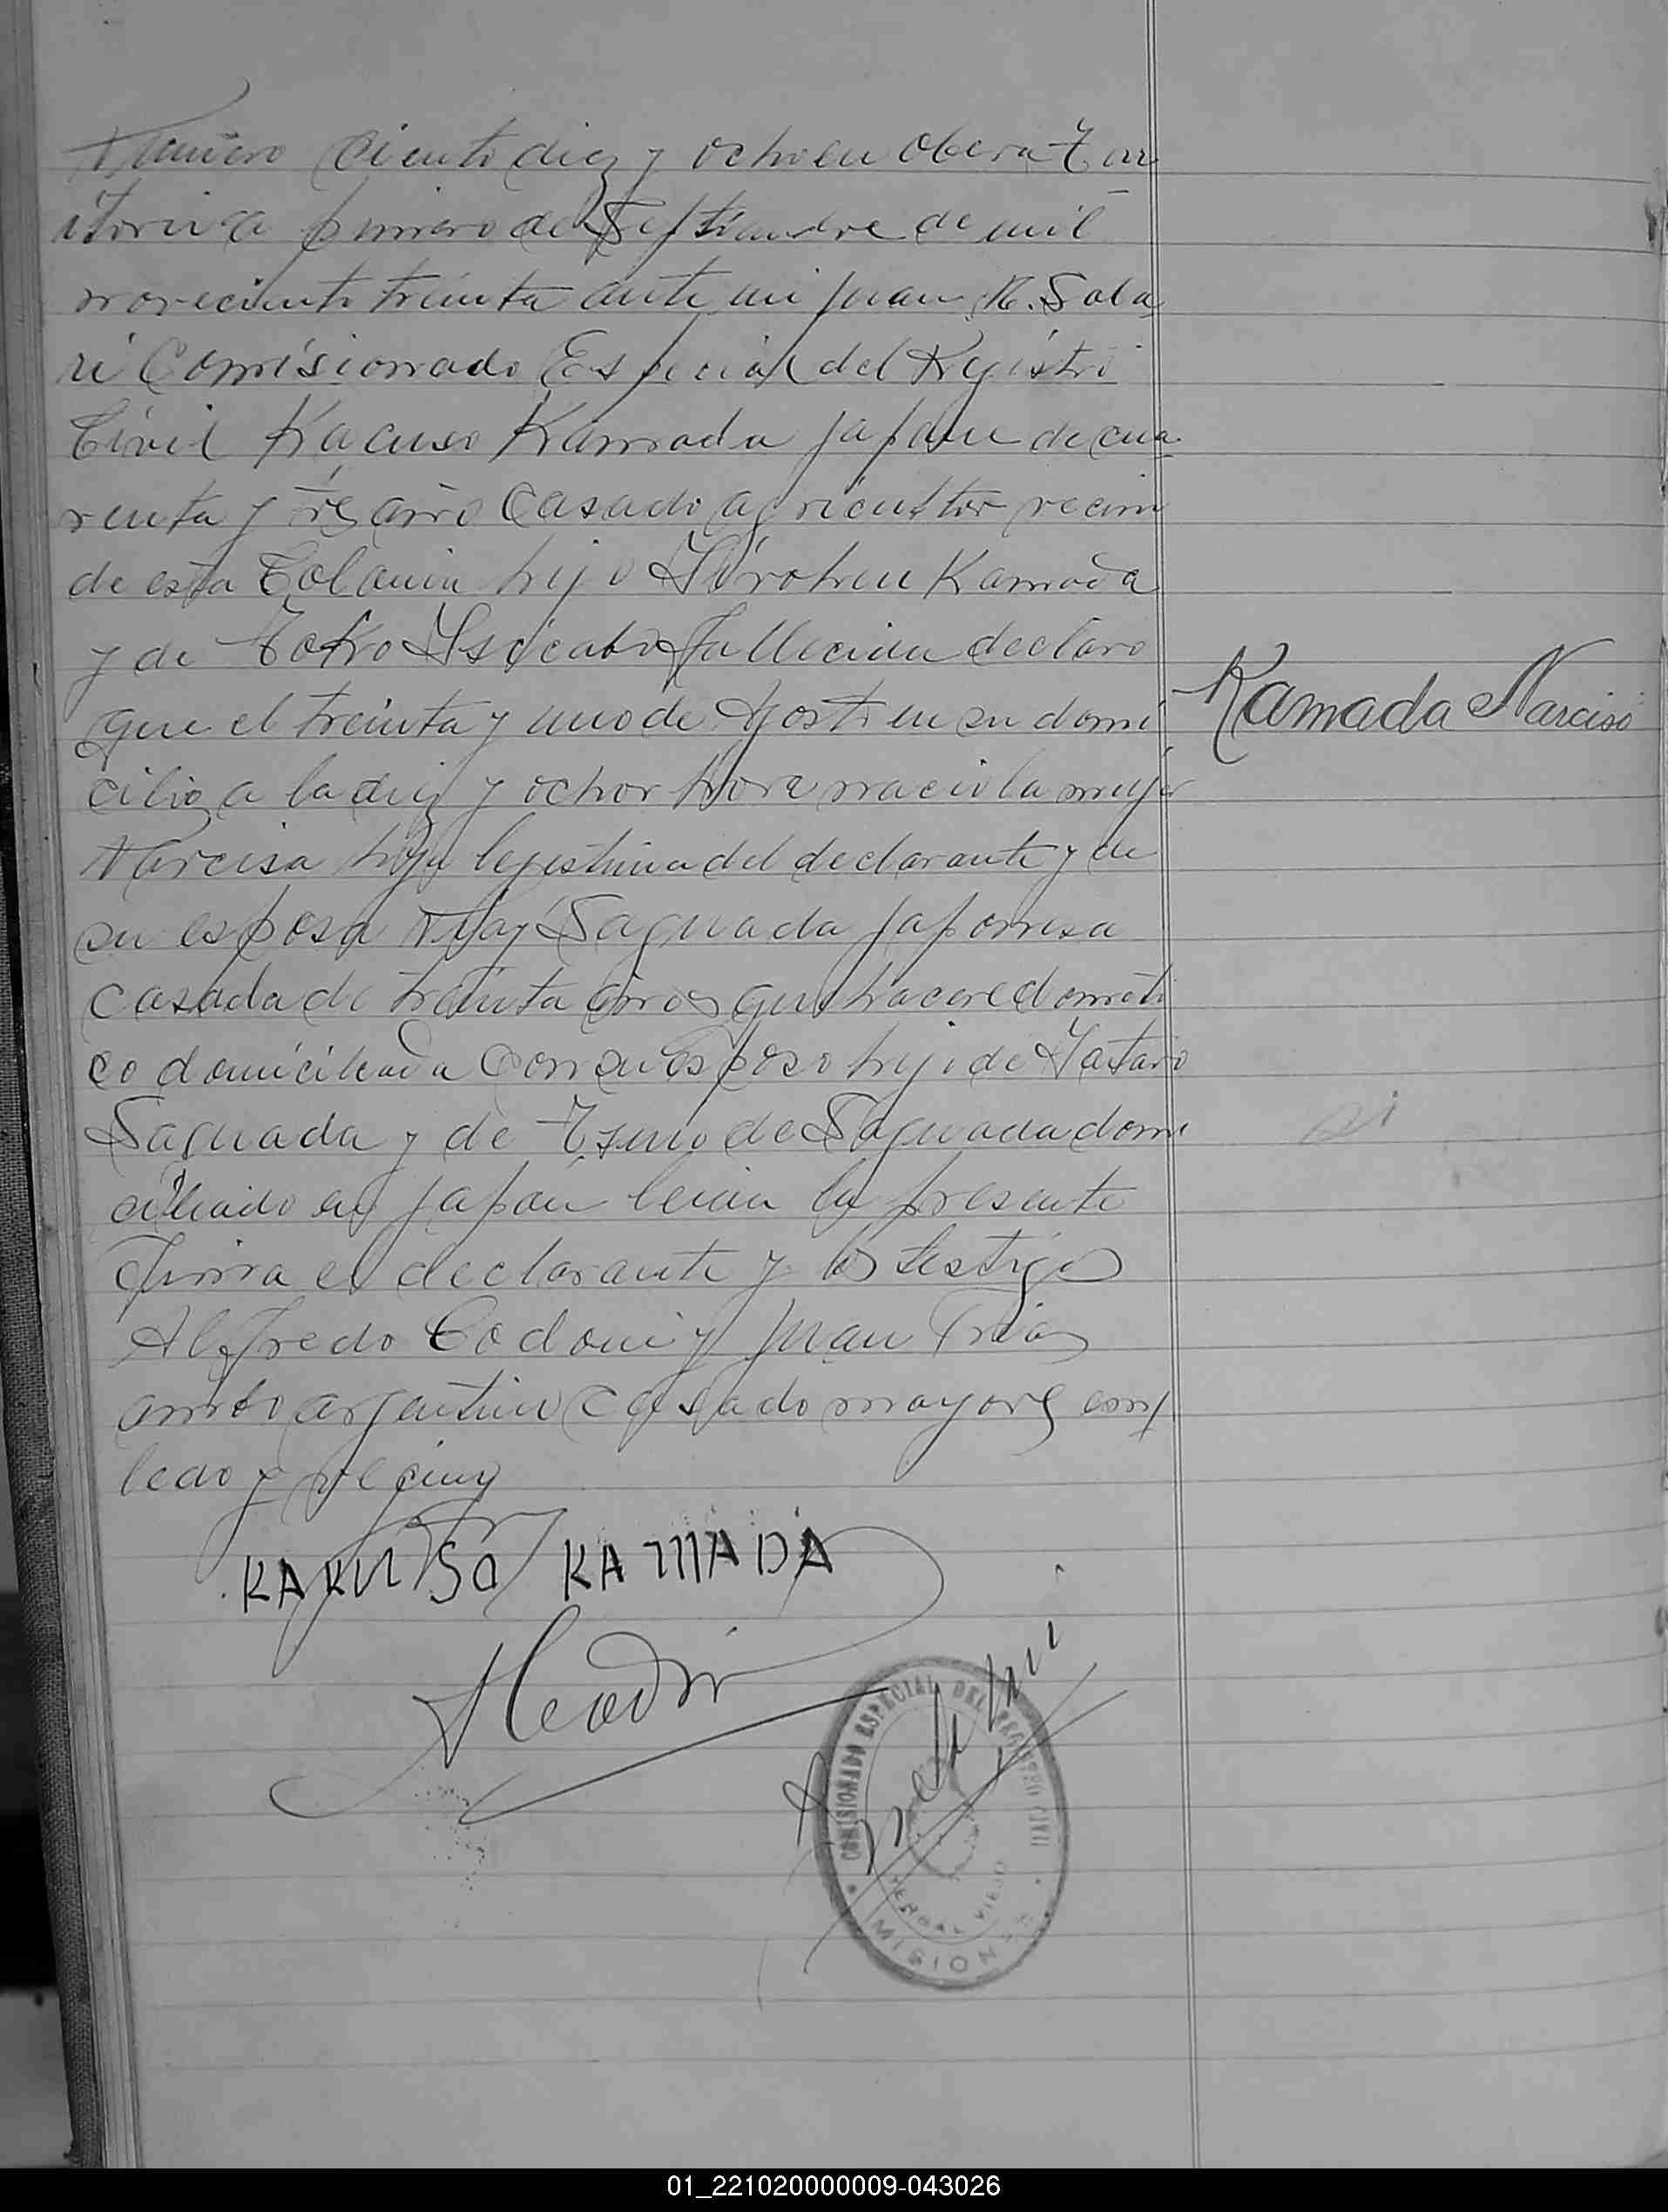 Numero Ciento diez y ocho en Obera Terr
itorio a primero de Septiembre de mil
noveciento treinta ante mi Juan M. Sola
ri Comisionado Especial del Registro
Civil Kacuso Kamada Japon de cua
renta y tres año Casado agricultor vecino
de esta Colonia hijo Kamada
y de fallecida declaro
que el treinta y uno de Agosto en su domi
cilio a la diez y ocho hora nacio la mujer
Narcisa hija legitima del declarante y de
su esposa Saguada Japonesa
Casada de treinta años quehacere domesti
co domiciliada con su esposo hija de Yataro
Saguada y de de Saguada domi
ciliado en Japon leida la presente
firma el declarante y los testigos
Alfredo Codoni y Juan Trias
ambo argentino Casado mayores emp
leado y vecino
Kamada Narciso
KAKUSO KAMADA
COMISIONADO ESPECIAL DEL REGISTRO CIVIL
YERBAL VIEJO
MISIONES
01_221020000009-043026